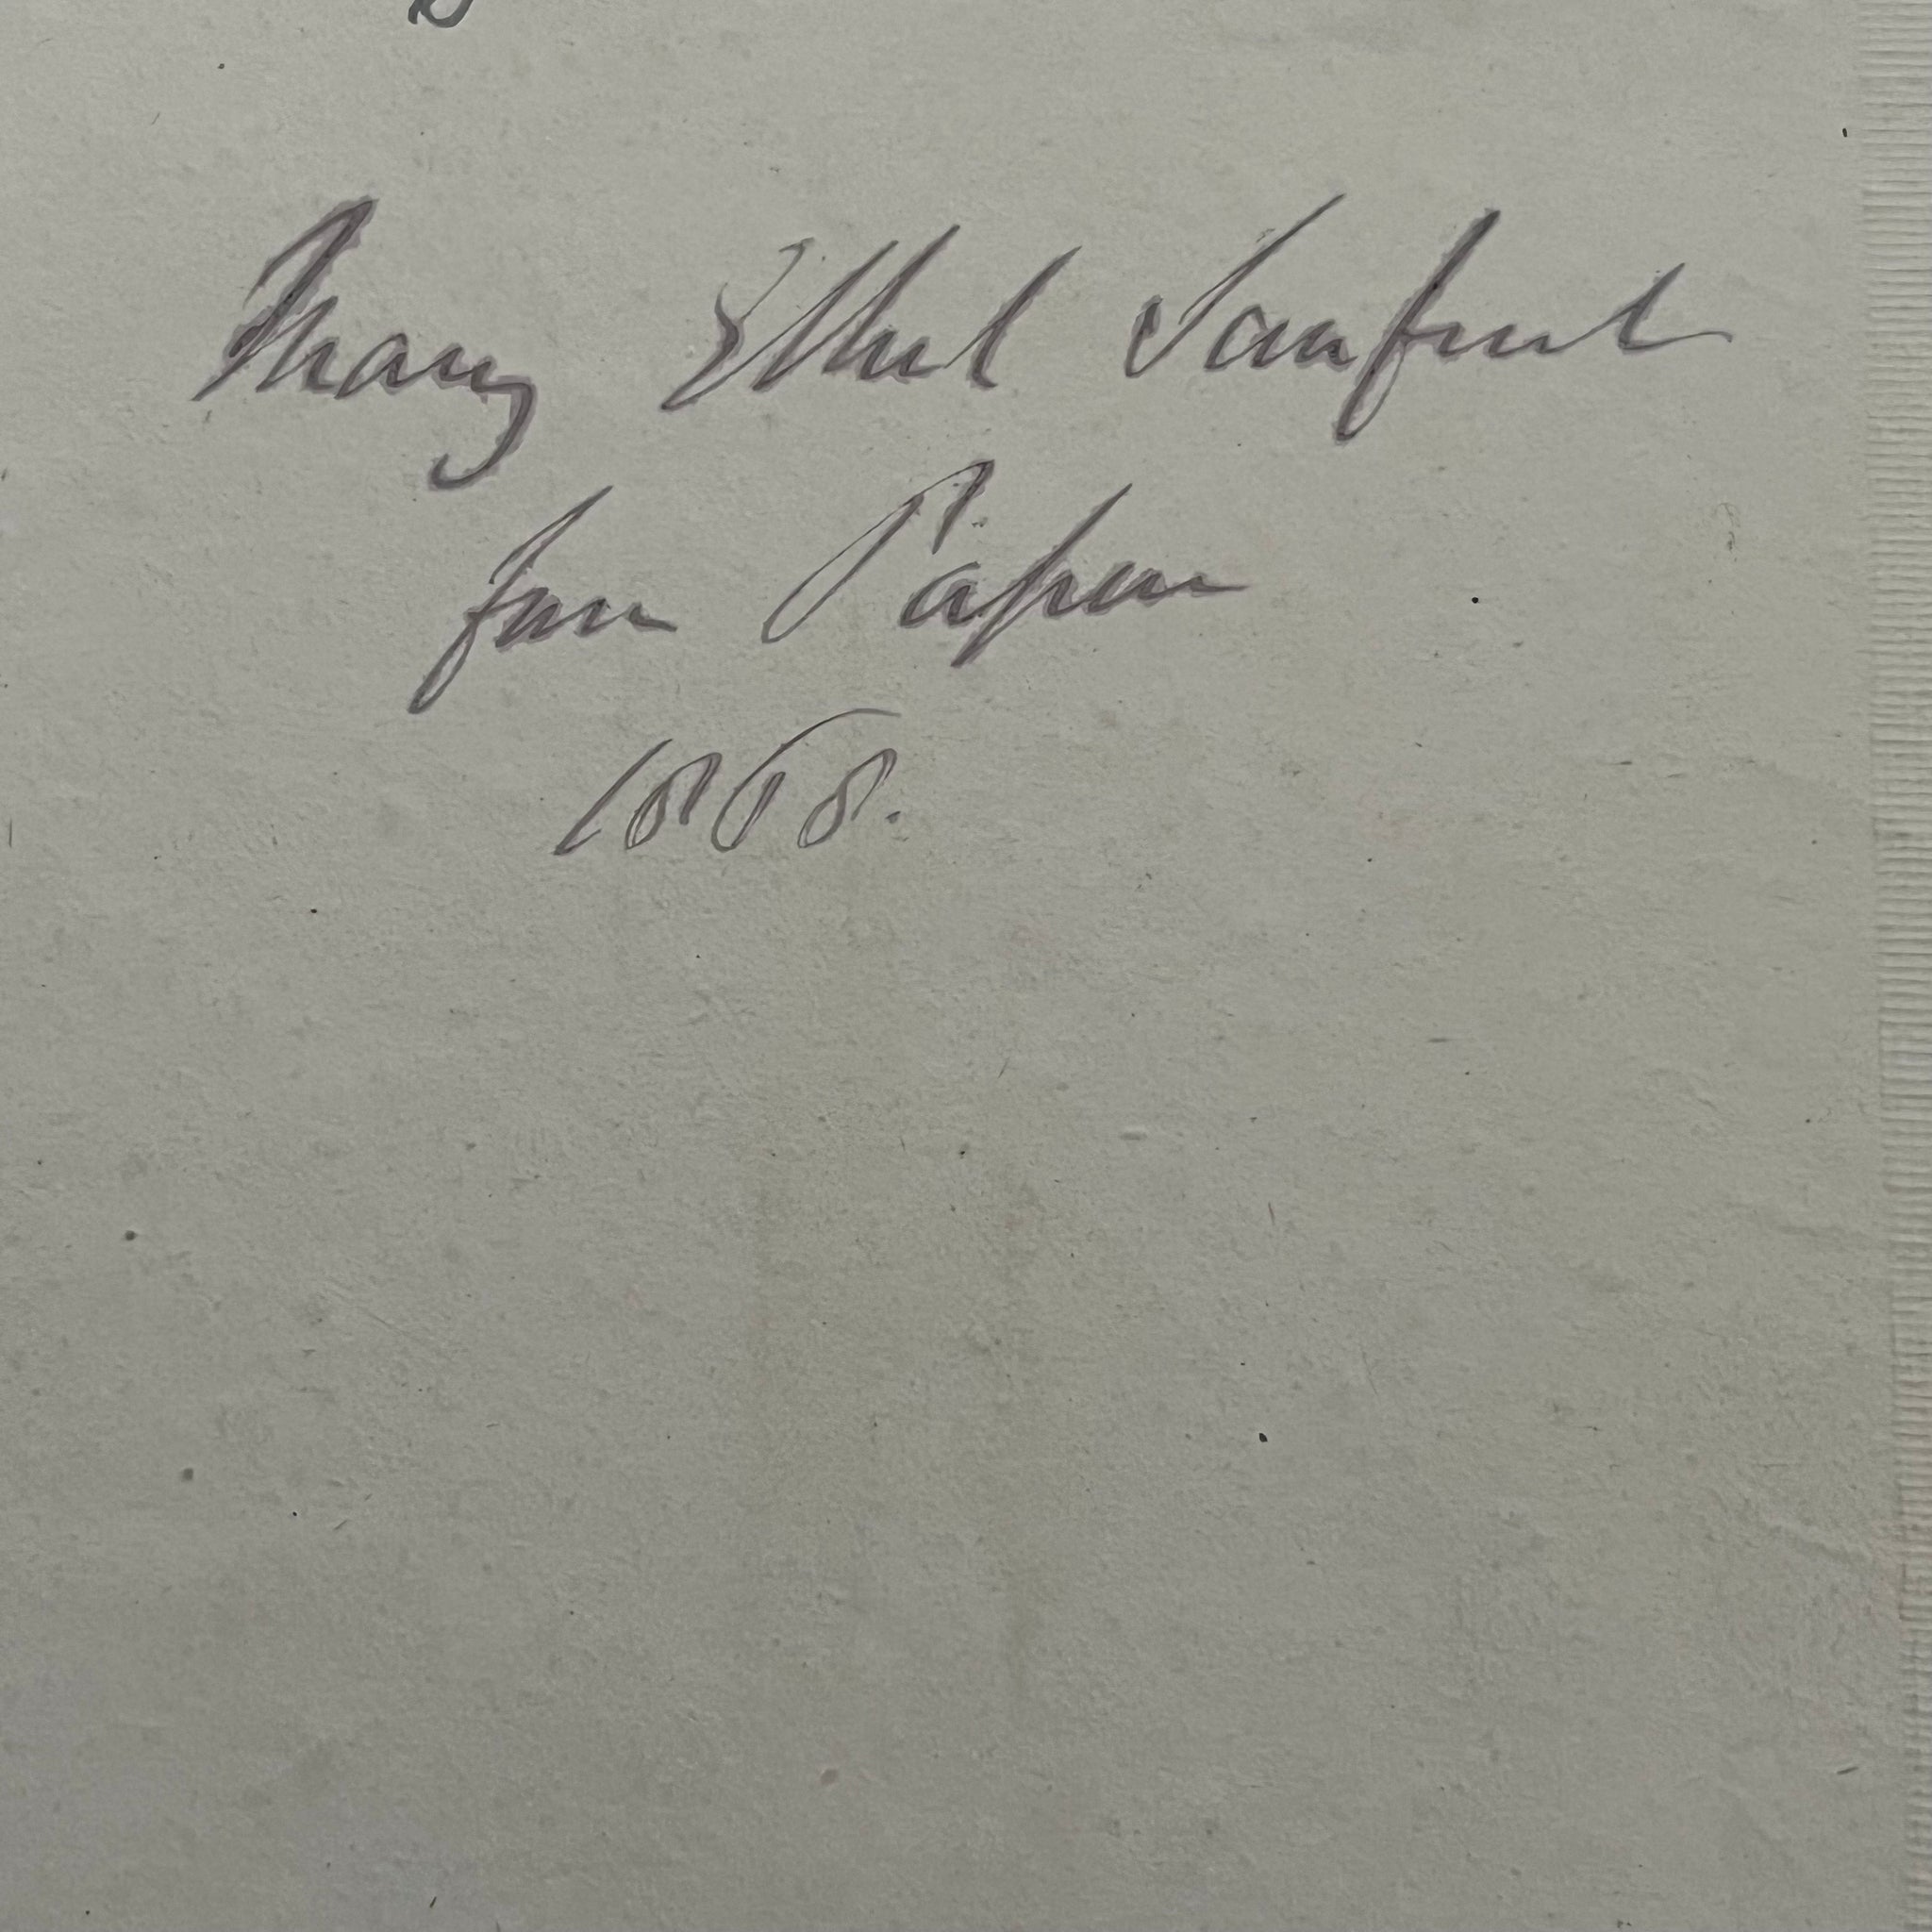 Mary Ethel Sanford
from Papa
1868.